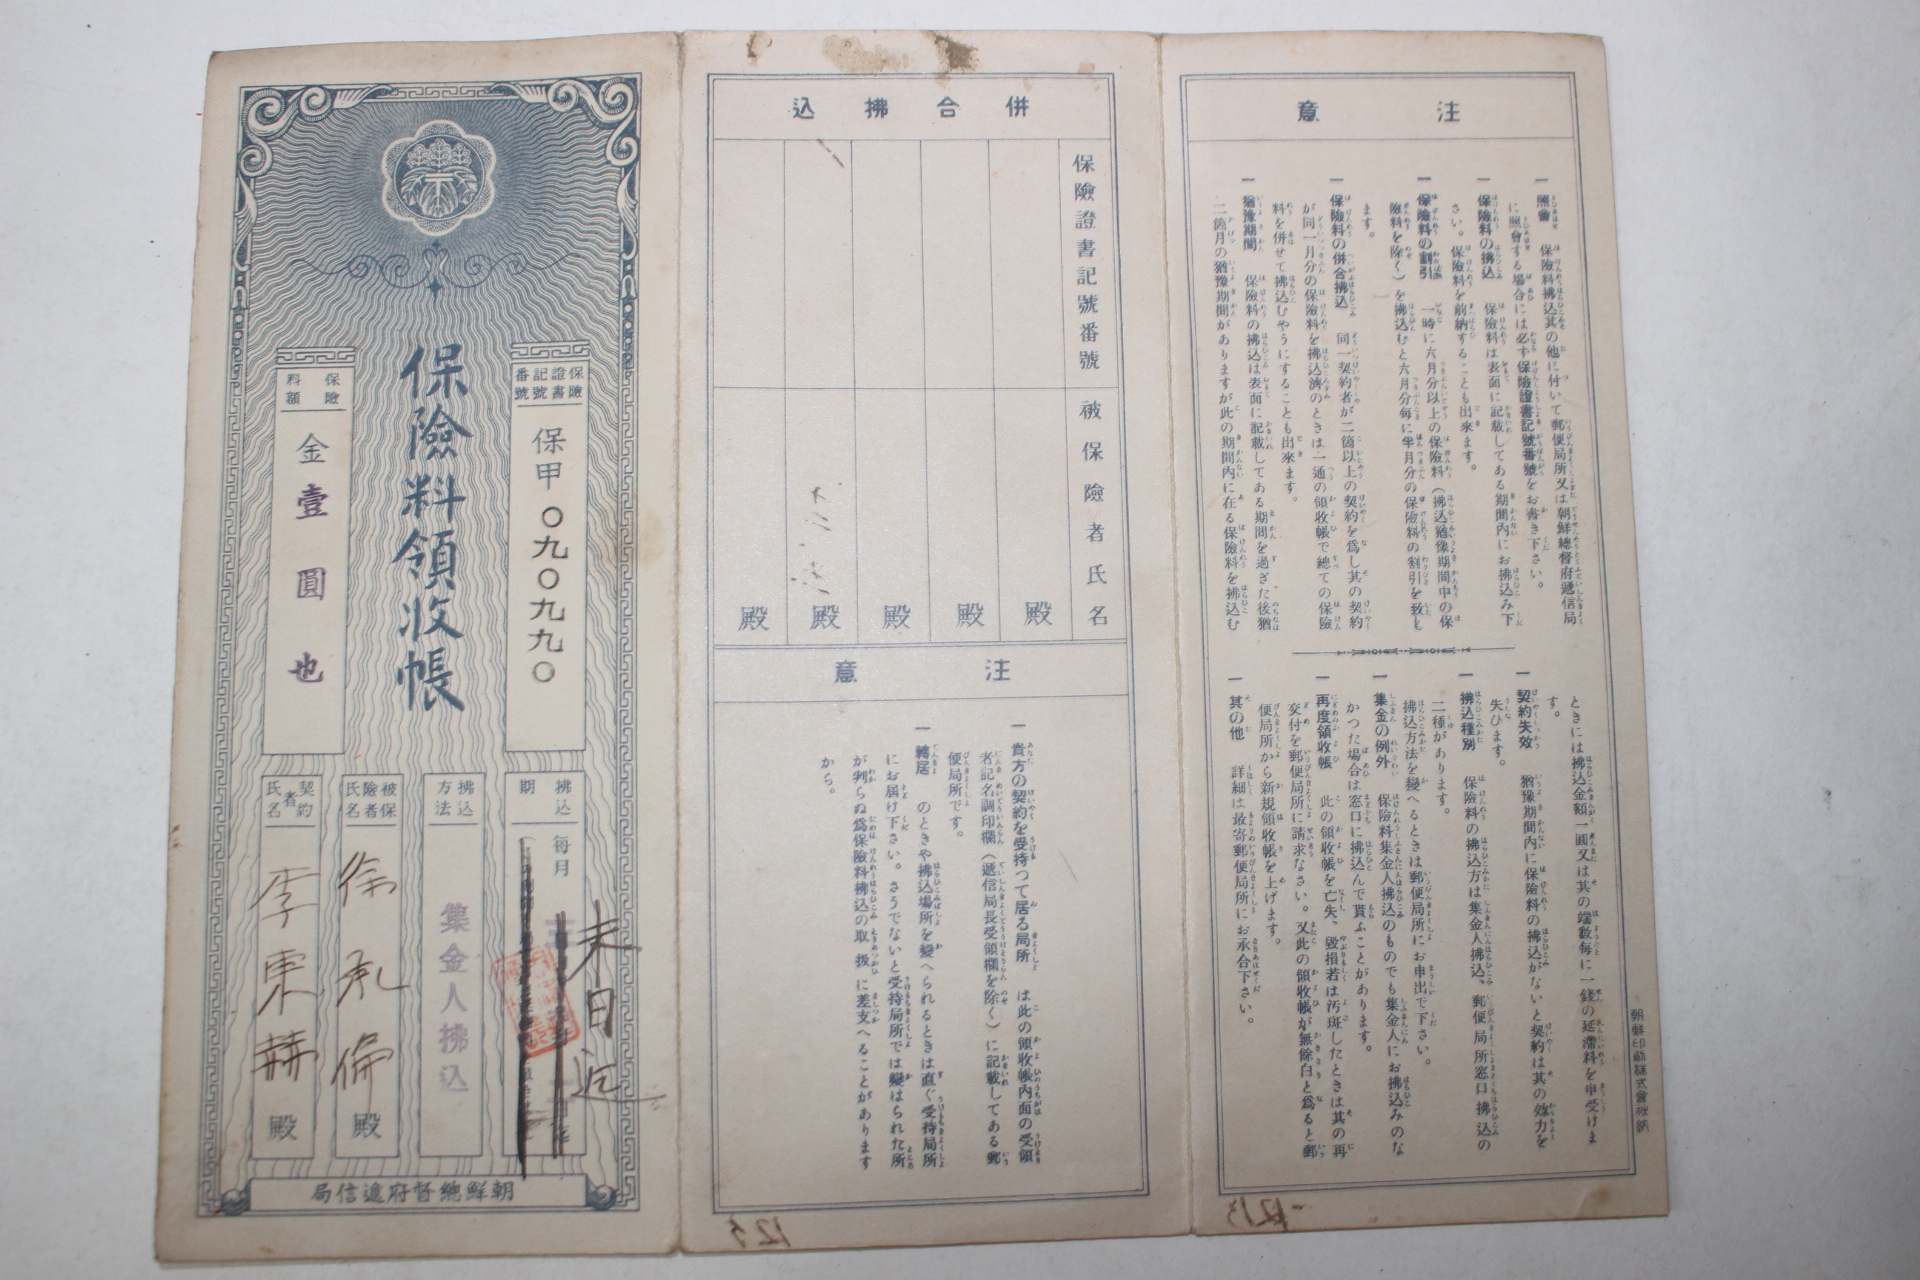 保險料領收帳
保險證書記號番號
保甲〇九〇九九〇
保險料額
金壹圓也
拂込期
毎月
末日迄
拂込方法
集金人拂込
被保險者氏名
徐
殿
契約者氏名
李東赫殿
朝鮮總督府遞信局
併合拂込
保險證書記號番號
被保險者氏名
殿
殿
殿
殿
殿
注意
一 貴方の契約を受持つて居る局所 は此の領收帳内面の受領
者記名調印欄(遞信局長受領欄を除く)に記載してある郵
便局所です。
一 轉居 のときや拂込場所を變へられるときは直ぐ受持局所
にお届け下さい。さうでないと受持局所では變はられた所
が判らぬ爲保險料拂込の取扱に差支へることがあります
から。
注意
一 照會 保險料拂込其の他に付いて郵便局所又は朝鮮總督府遞信局
に照會する場合には必ず保險證書記號番號をお書き下さい。
一 保險料の拂込 保險料は表面に記載してある期間内にお拂込み下
さい。保險料を前納することも出來ます。
一 保險料の割引 一時に六月分以上の保險料(拂込猶豫期間中の保
險料を除く)を拂込むと六月分毎に半月分の保險料の割引を致し
ます。
一 保險料の併合拂込 同一契約者が二箇以上の契約を爲し其の契約
が同一月分の保險料を拂込濟のときは一通の領收帳で總ての保險
料を併せて拂込むやうにすることも出來ます。
一 猶豫期間 保險料の拂込は表面に記載してある期間を過ぎた後猶
二箇月の猶豫期間がありますが此の期間内に在る保險料を拂込む
ときには拂込金額一圓又は其の端數毎に一錢の延滯料を申受けま
す。
一 契約失效 猶豫期間内に保險料の拂込がないと契約は其の效力を
失ひます。
一 拂込種別 保險料の拂込方は集金人拂込、郵便局所窓口拂込の
二種があります。
拂込方法を變へるときは郵便局所にお申出で下さい。
一 集金の例外 保險料集金人拂込のものでも集金人にお拂込みのな
かつた場合は窓口に拂込んで貰ふことがあります。
一 再度領收帳 此の領收帳を亡失、毀損若は汚斑したときは其の再
交付を郵便局所に請求なさい。又此の領收帳が無餘白と爲ると郵
便局所から新規領收帳を上げます。
一 其の他 詳細は最寄郵便局所にお承合下さい。
朝鮮印刷株式會社納